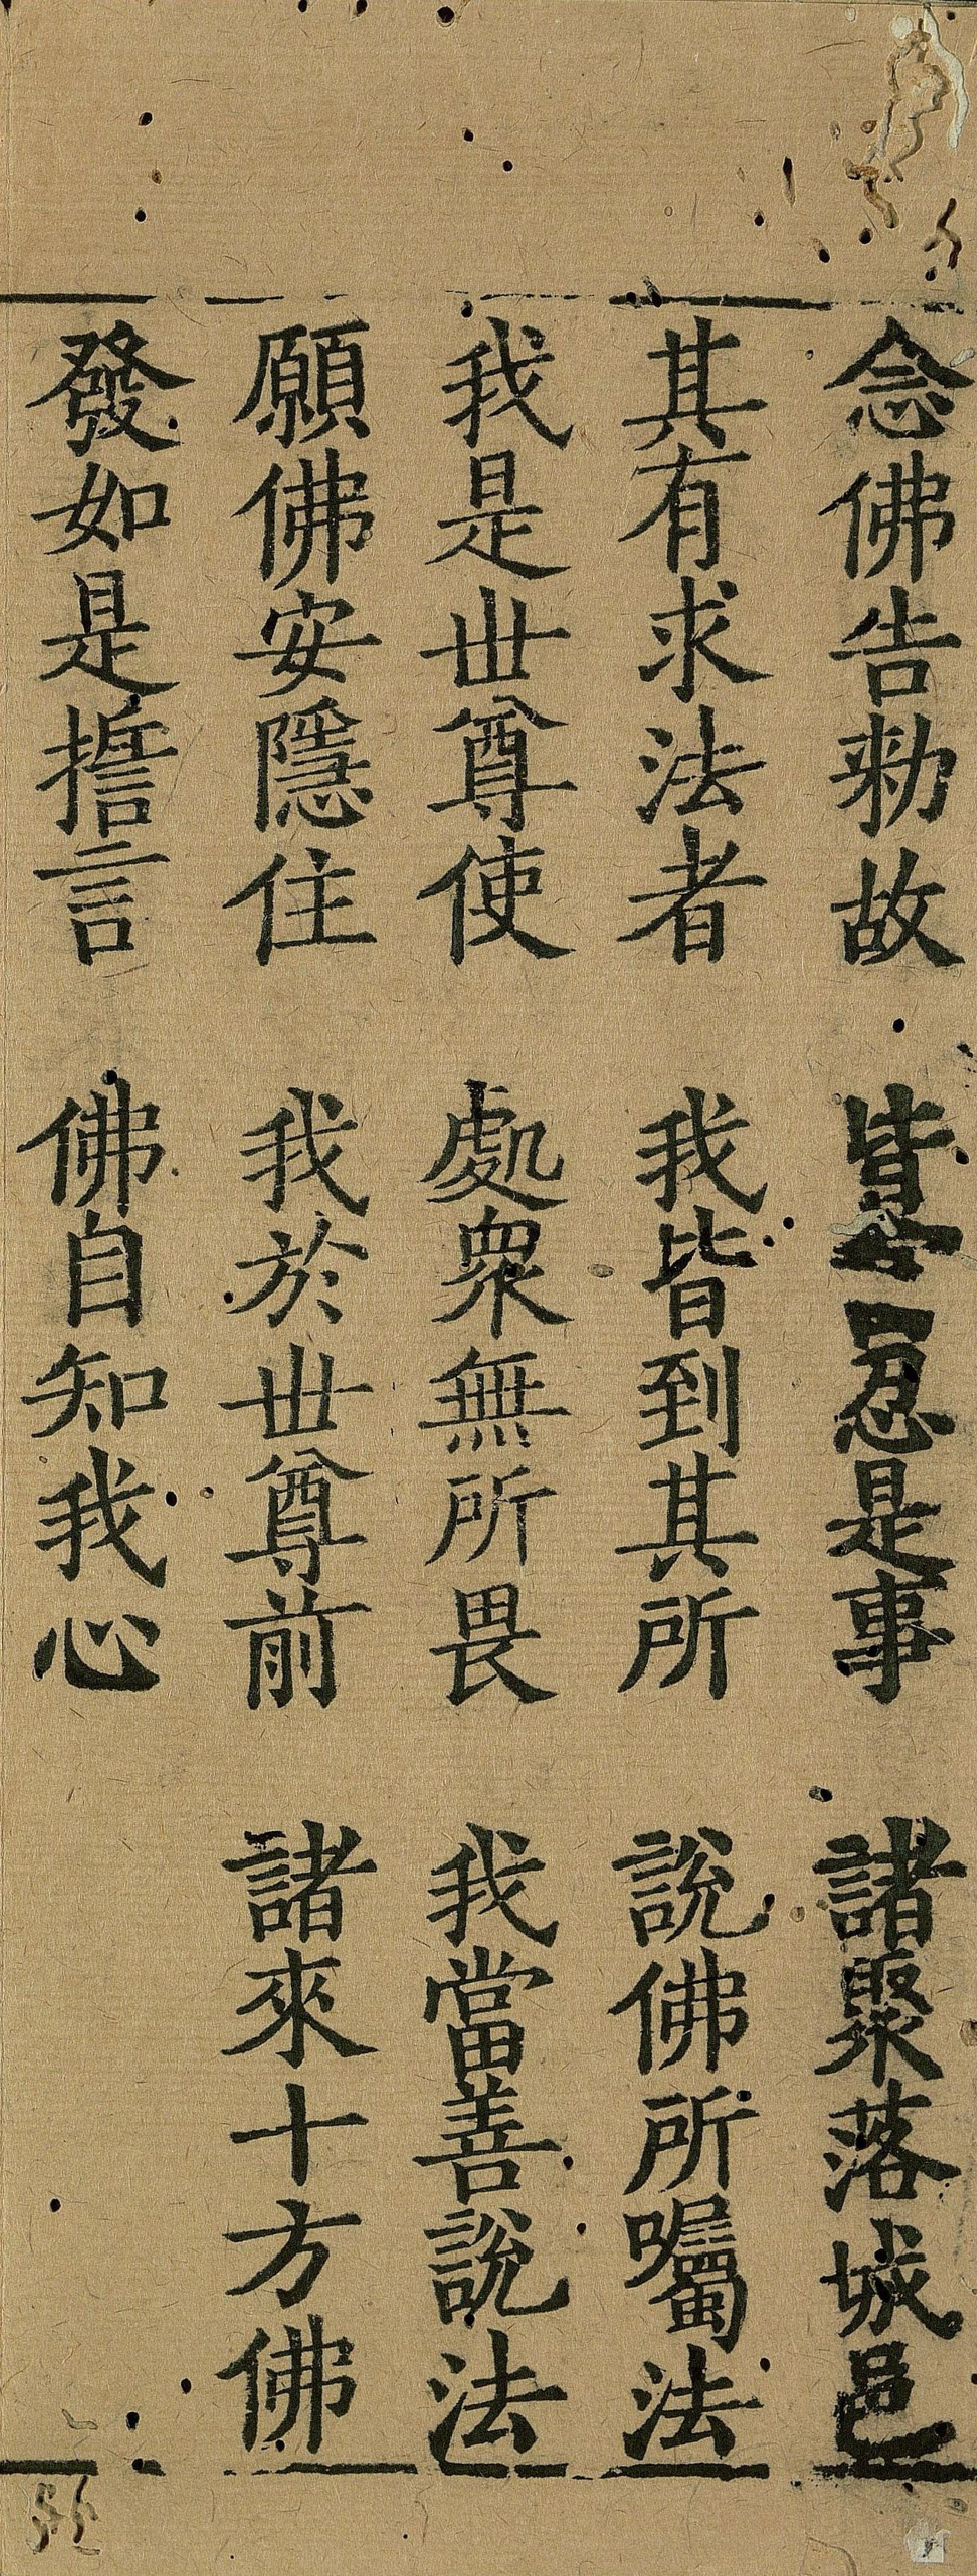 念佛告勑故 皆當忍是事 諸聚落城邑
其有求法者 我皆到其所 說佛所囑法
我是世尊使 處衆無所畏 我當善說法
願佛安隱住 我於世尊前 諸來十方佛
發如是擔言 佛自知我心